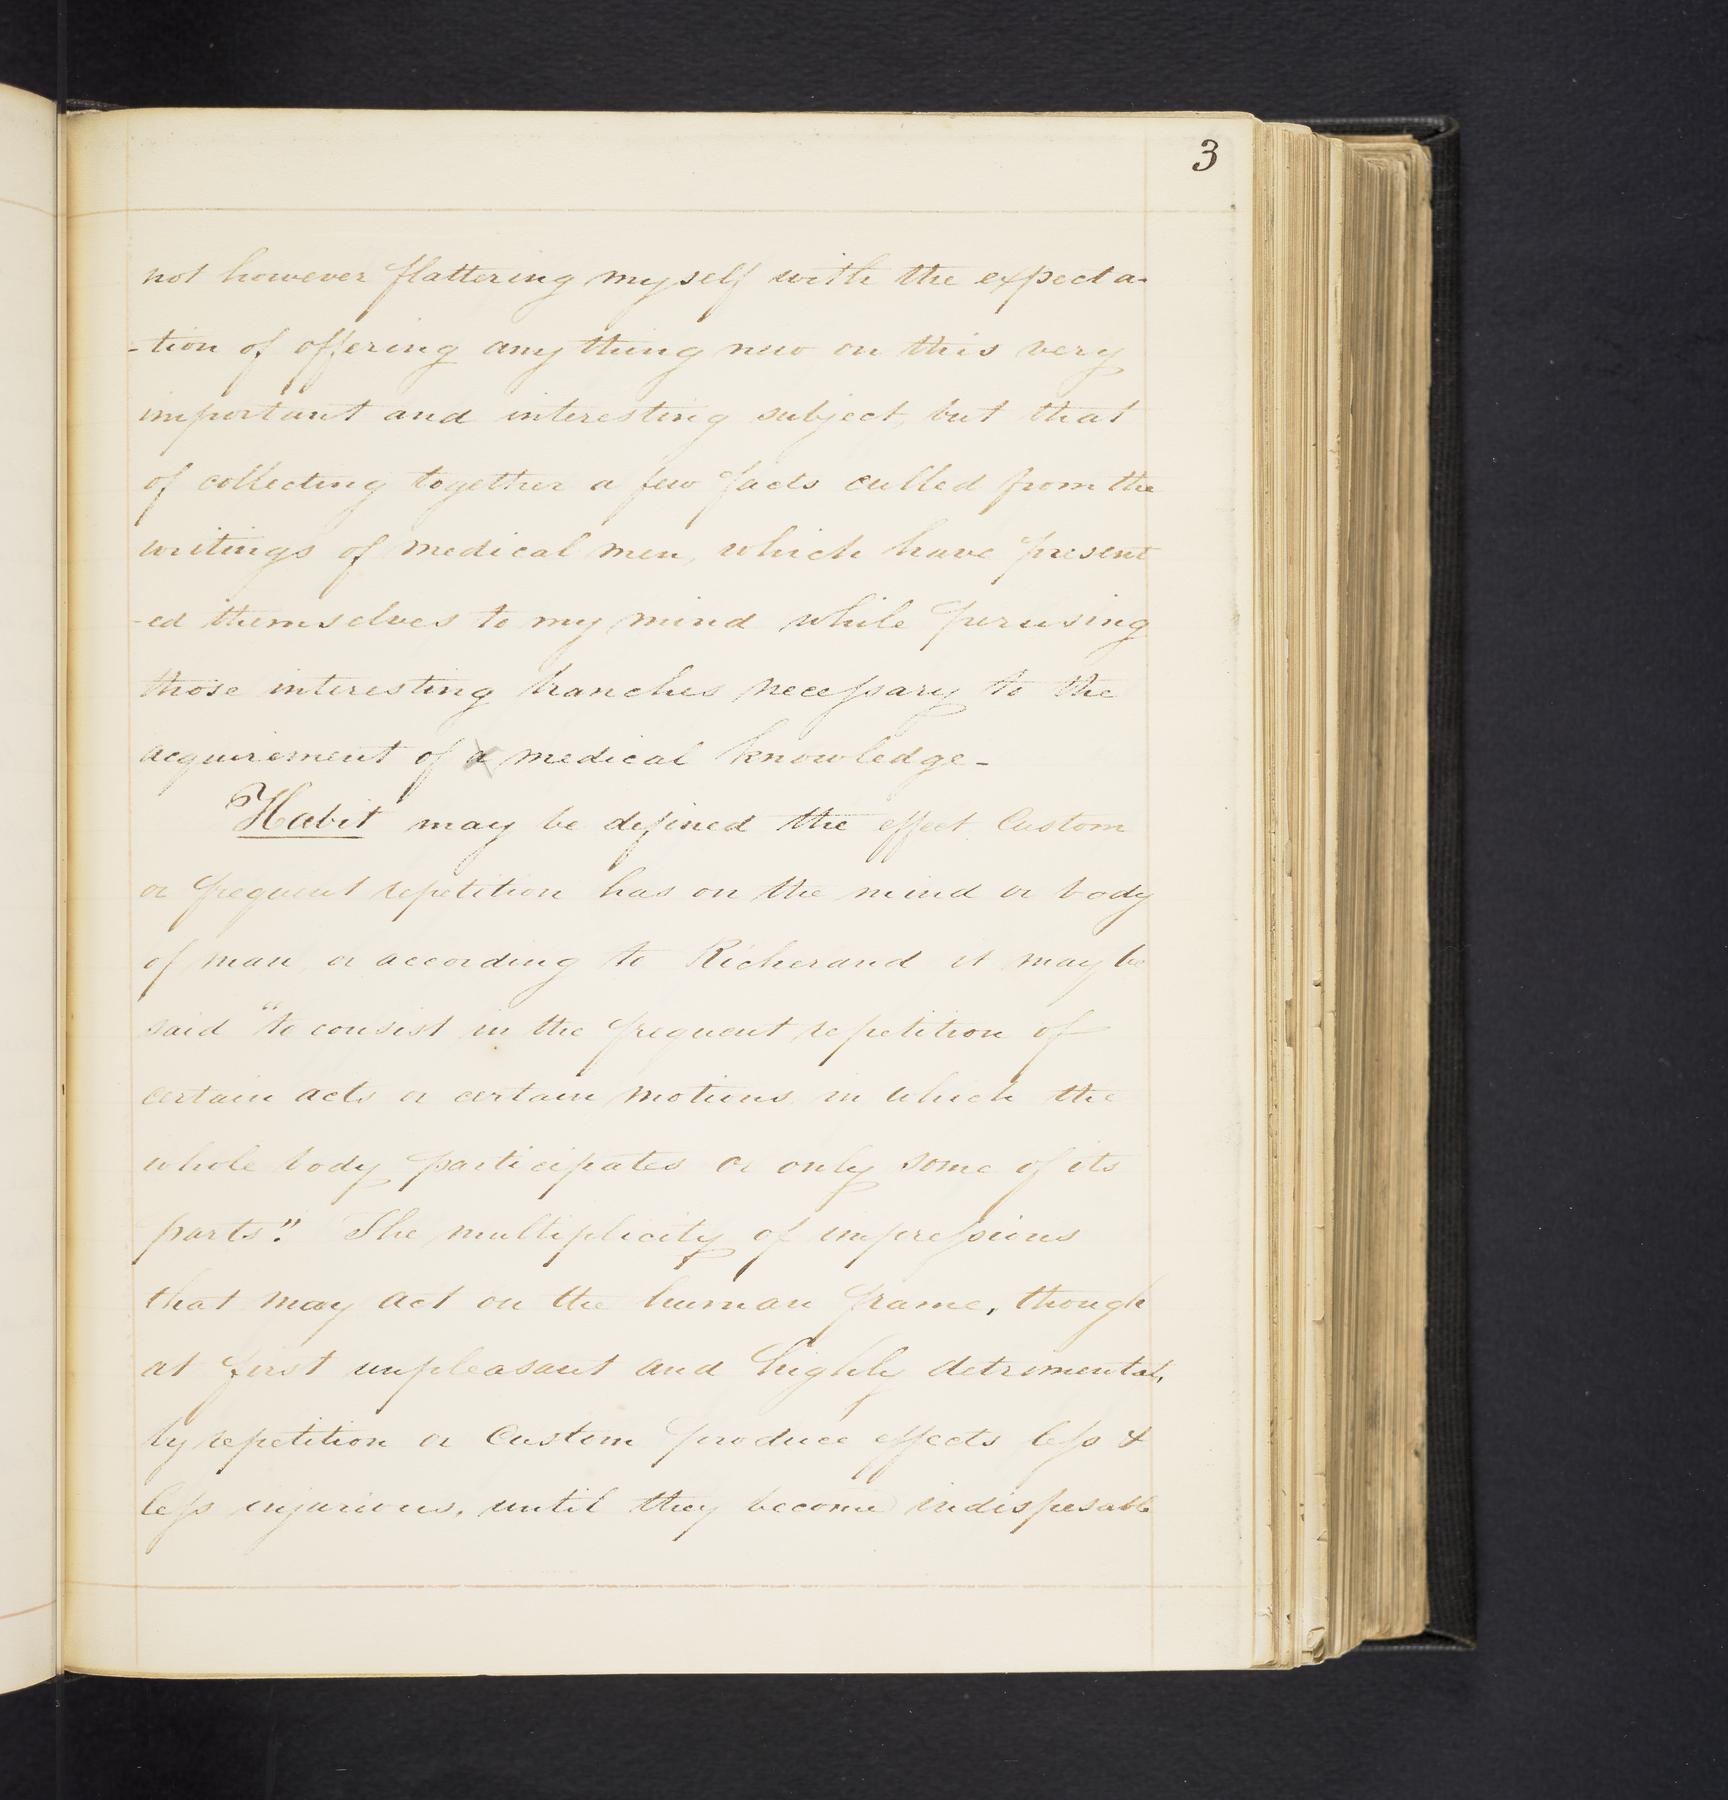 3
not however flattering myself with the expecta-
-tion of offering any thing new on this very
important and interesting subject, but that
of collecting together a few facts culled from the
writings of medical men, which have present
-ed themselves to my mind while perusing
those interesting branches necessary to the
acquirement of a medical knowledge-
Habit may be defined the effect Custom
or frequent repetition has on the mind or body
of man, or according to Richerand it may be
said "to consist in the frequent repetition of
certain acts or certain motions in which the
whole body participates or only some of its
parts." The multiplicity of impressions
that may act on the human frame, though
at first unpleasant and highly detrimental,
by repetition or Custom produce effects less &
less injurious, until they become indispesable